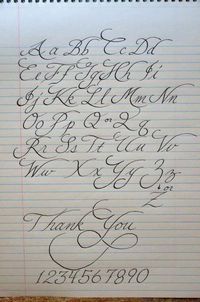 Aa Bb Cc Dd
Ee Ff Gg Hh Ii
Jj Kk Ll Mm Nn
Oo Pp Q or Q q
Rr Ss Tt Uu Vv
Ww Xx Yy Zz
or
z
Thank You
1234567890